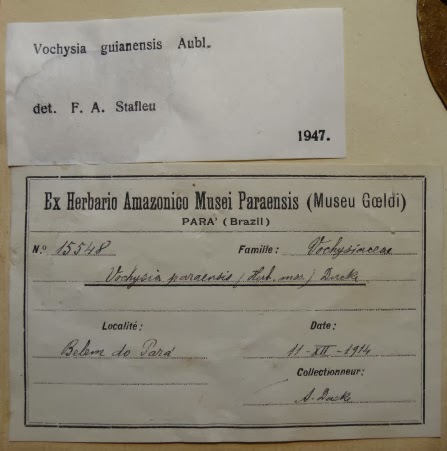 Vochysia guianensis Aubl.
det. F. A. Stafleu
1947.
Ex Herbario Amazonico Musei Paraensis (Museu Gœldi)
PARA' (Brazil)
N.º 15548 Famille: Vochysiaceae
Vochysia paraensis (Hub. msc.) Ducke
Localité: Date:
Belem do Pará 11-XII-1914
Collectionneur:
A. Ducke